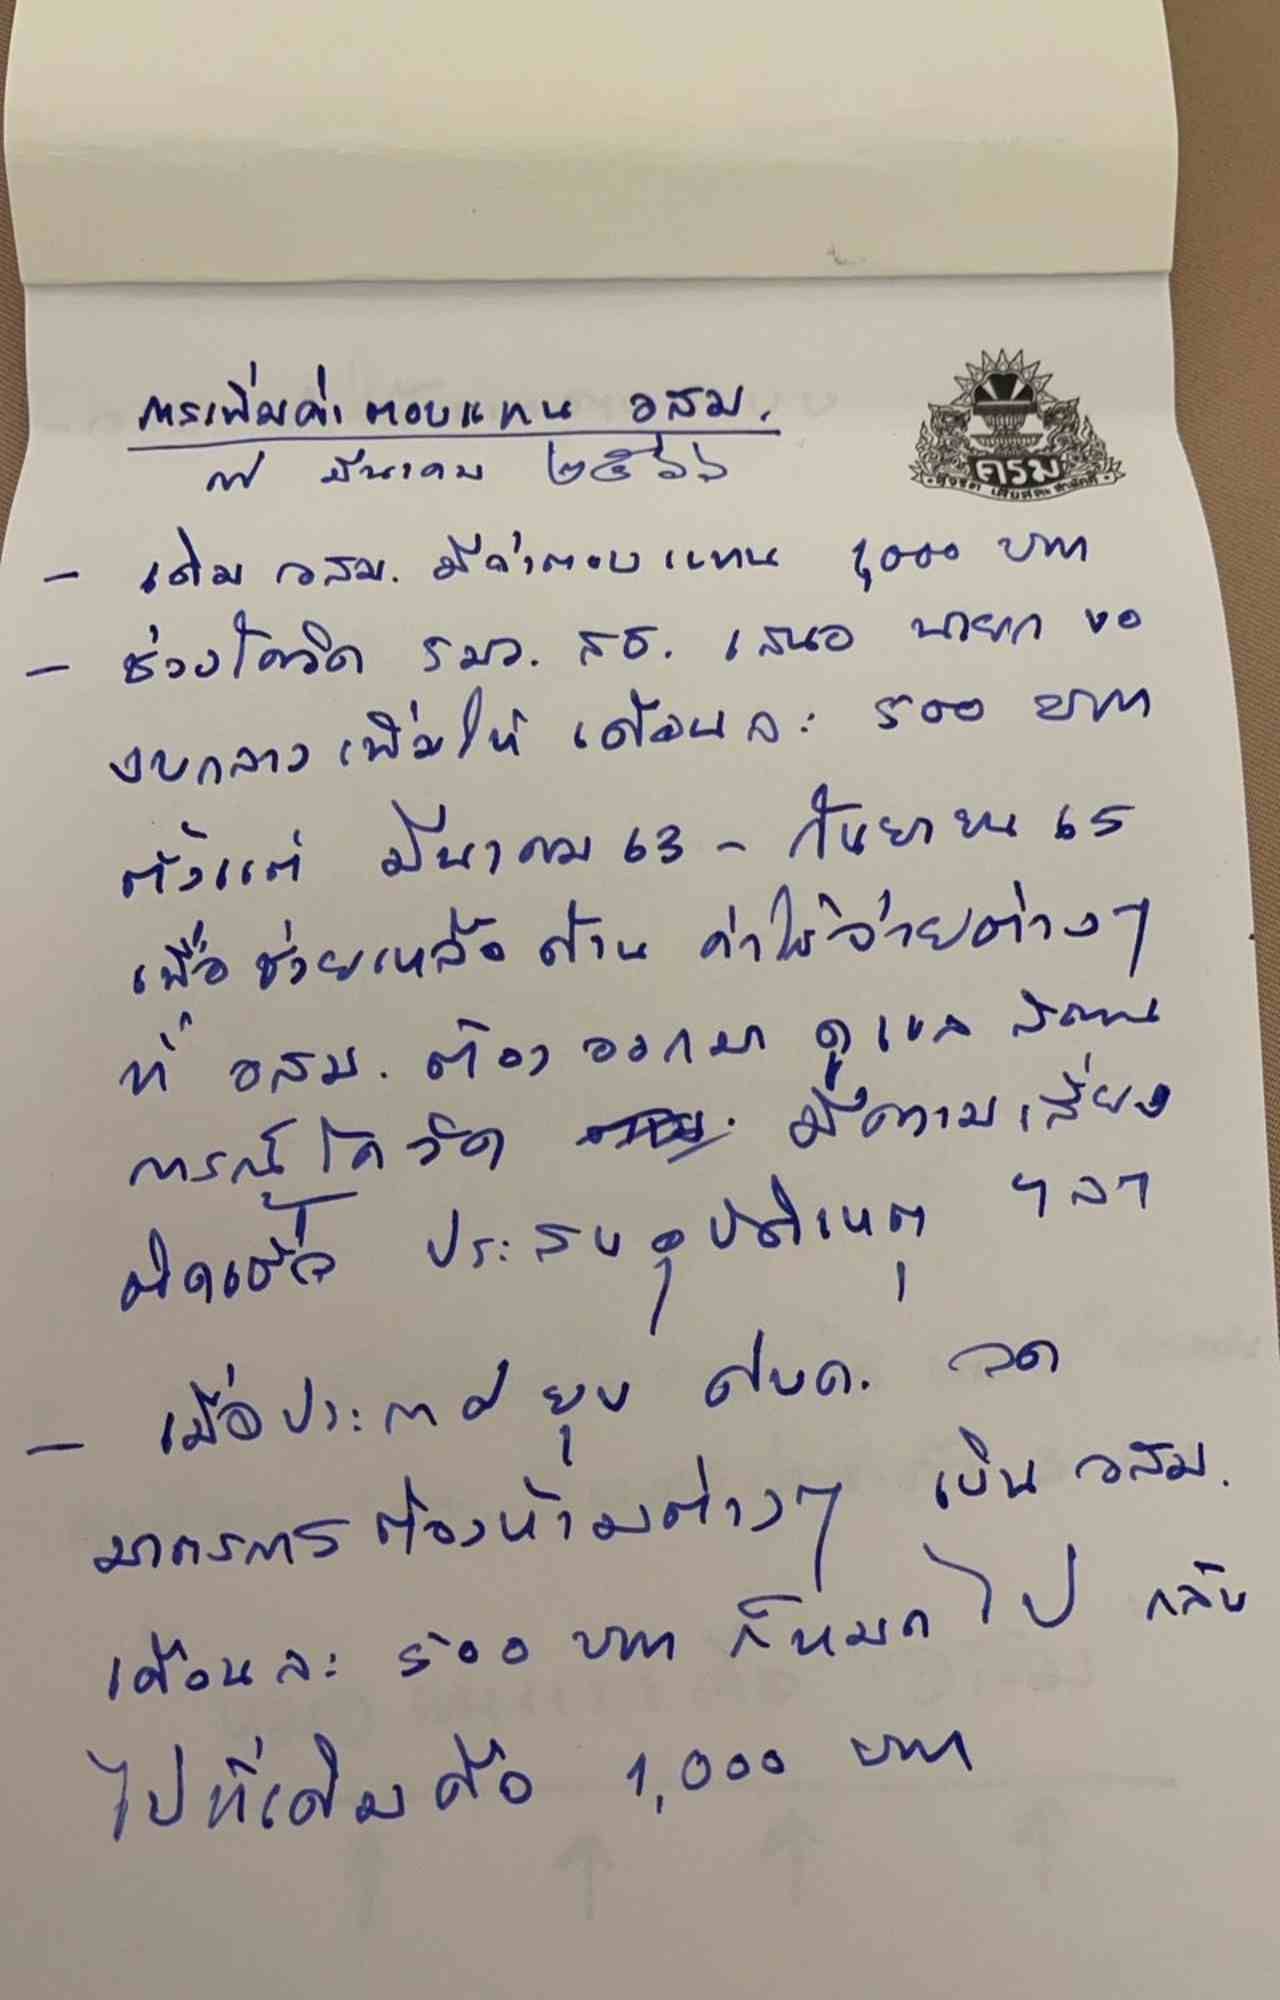 การเพิ่มค่าตอบแทน อสม.
๗ มีนาคม ๒๕๖๖
ครม
- เดิม อสม. มีค่าตอบแทน 1,000 บาท
- ช่วงโควิด รมว. สธ. เสนอ นายก ขอ
งบกลาง เพิ่มให้ เดือนละ 500 บาท
ตั้งแต่ มีนาคม 63 - กันยายน 65
เพื่อช่วยเหลือ ด้าน ค่าใช้จ่ายต่างๆ
ที่ อสม. ต้อง ออกมา ดูแล สถาน
การณ์โควิด มีความเสี่ยง
ติดเชื้อ ประสบอุบัติเหตุ ฯลฯ
- เมื่อประกาศ ยุบ ศบค. ลด
มาตรการ ต้องห้ามต่างๆ เงิน อสม.
เดือนละ 500 บาท ก็หมดไป กลับ
ไปที่เดิมคือ 1,000 บาท